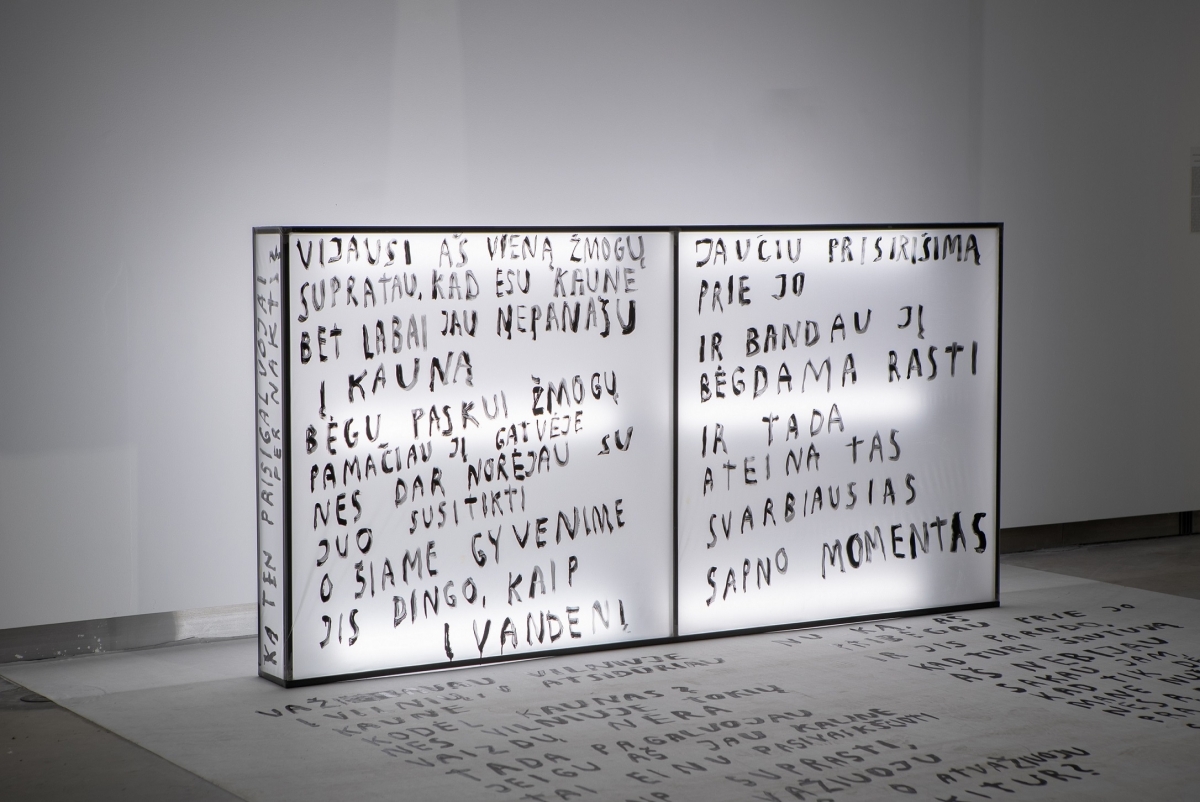 KĄ TEN PRISIGALVOJAI
PER NAKTĮ
VIJAUSI AŠ VIENĄ ŽMOGŲ
SUPRATAU, KAD ESU KAUNE
BET LABAI JAU NEPANAŠU
Į KAUNĄ
BĖGU PASKUI ŽMOGŲ
PAMAČIAU JĮ GATVĖJE
NES DAR NORĖJAU SU
JUO SUSITIKTI
O ŠIAME GYVENIME
JIS DINGO, KAIP
Į VANDENĮ
JAUČIU PRISIRIŠIMĄ
PRIE JO
IR BANDAU JĮ
BĖGDAMA RASTI
IR TADA
ATEINA TAS
SVARBIAUSIAS
SAPNO MOMENTAS
VAŽINĖJAU VILNIUJE
ATSIDŪRIAU
KAUNE
KODĖL KAUNAS?
NES VILNIUJE TOKIŲ
VAIZDŲ NĖRA
TADA PAGALVOJAU
JEIGU AŠ JAU KAUNE
TAI EINU PASIVAIKŠČIOTI
SUPRASTI,
VAŽIUOJU
O ATVAŽIUOJU
Į TURTĘ
PRIE JO
IR JIS PARODO,
KAD TURI ŠAUTUVĄ
SAKAU, NEBIJAU
KAD TIK JAM
MANE